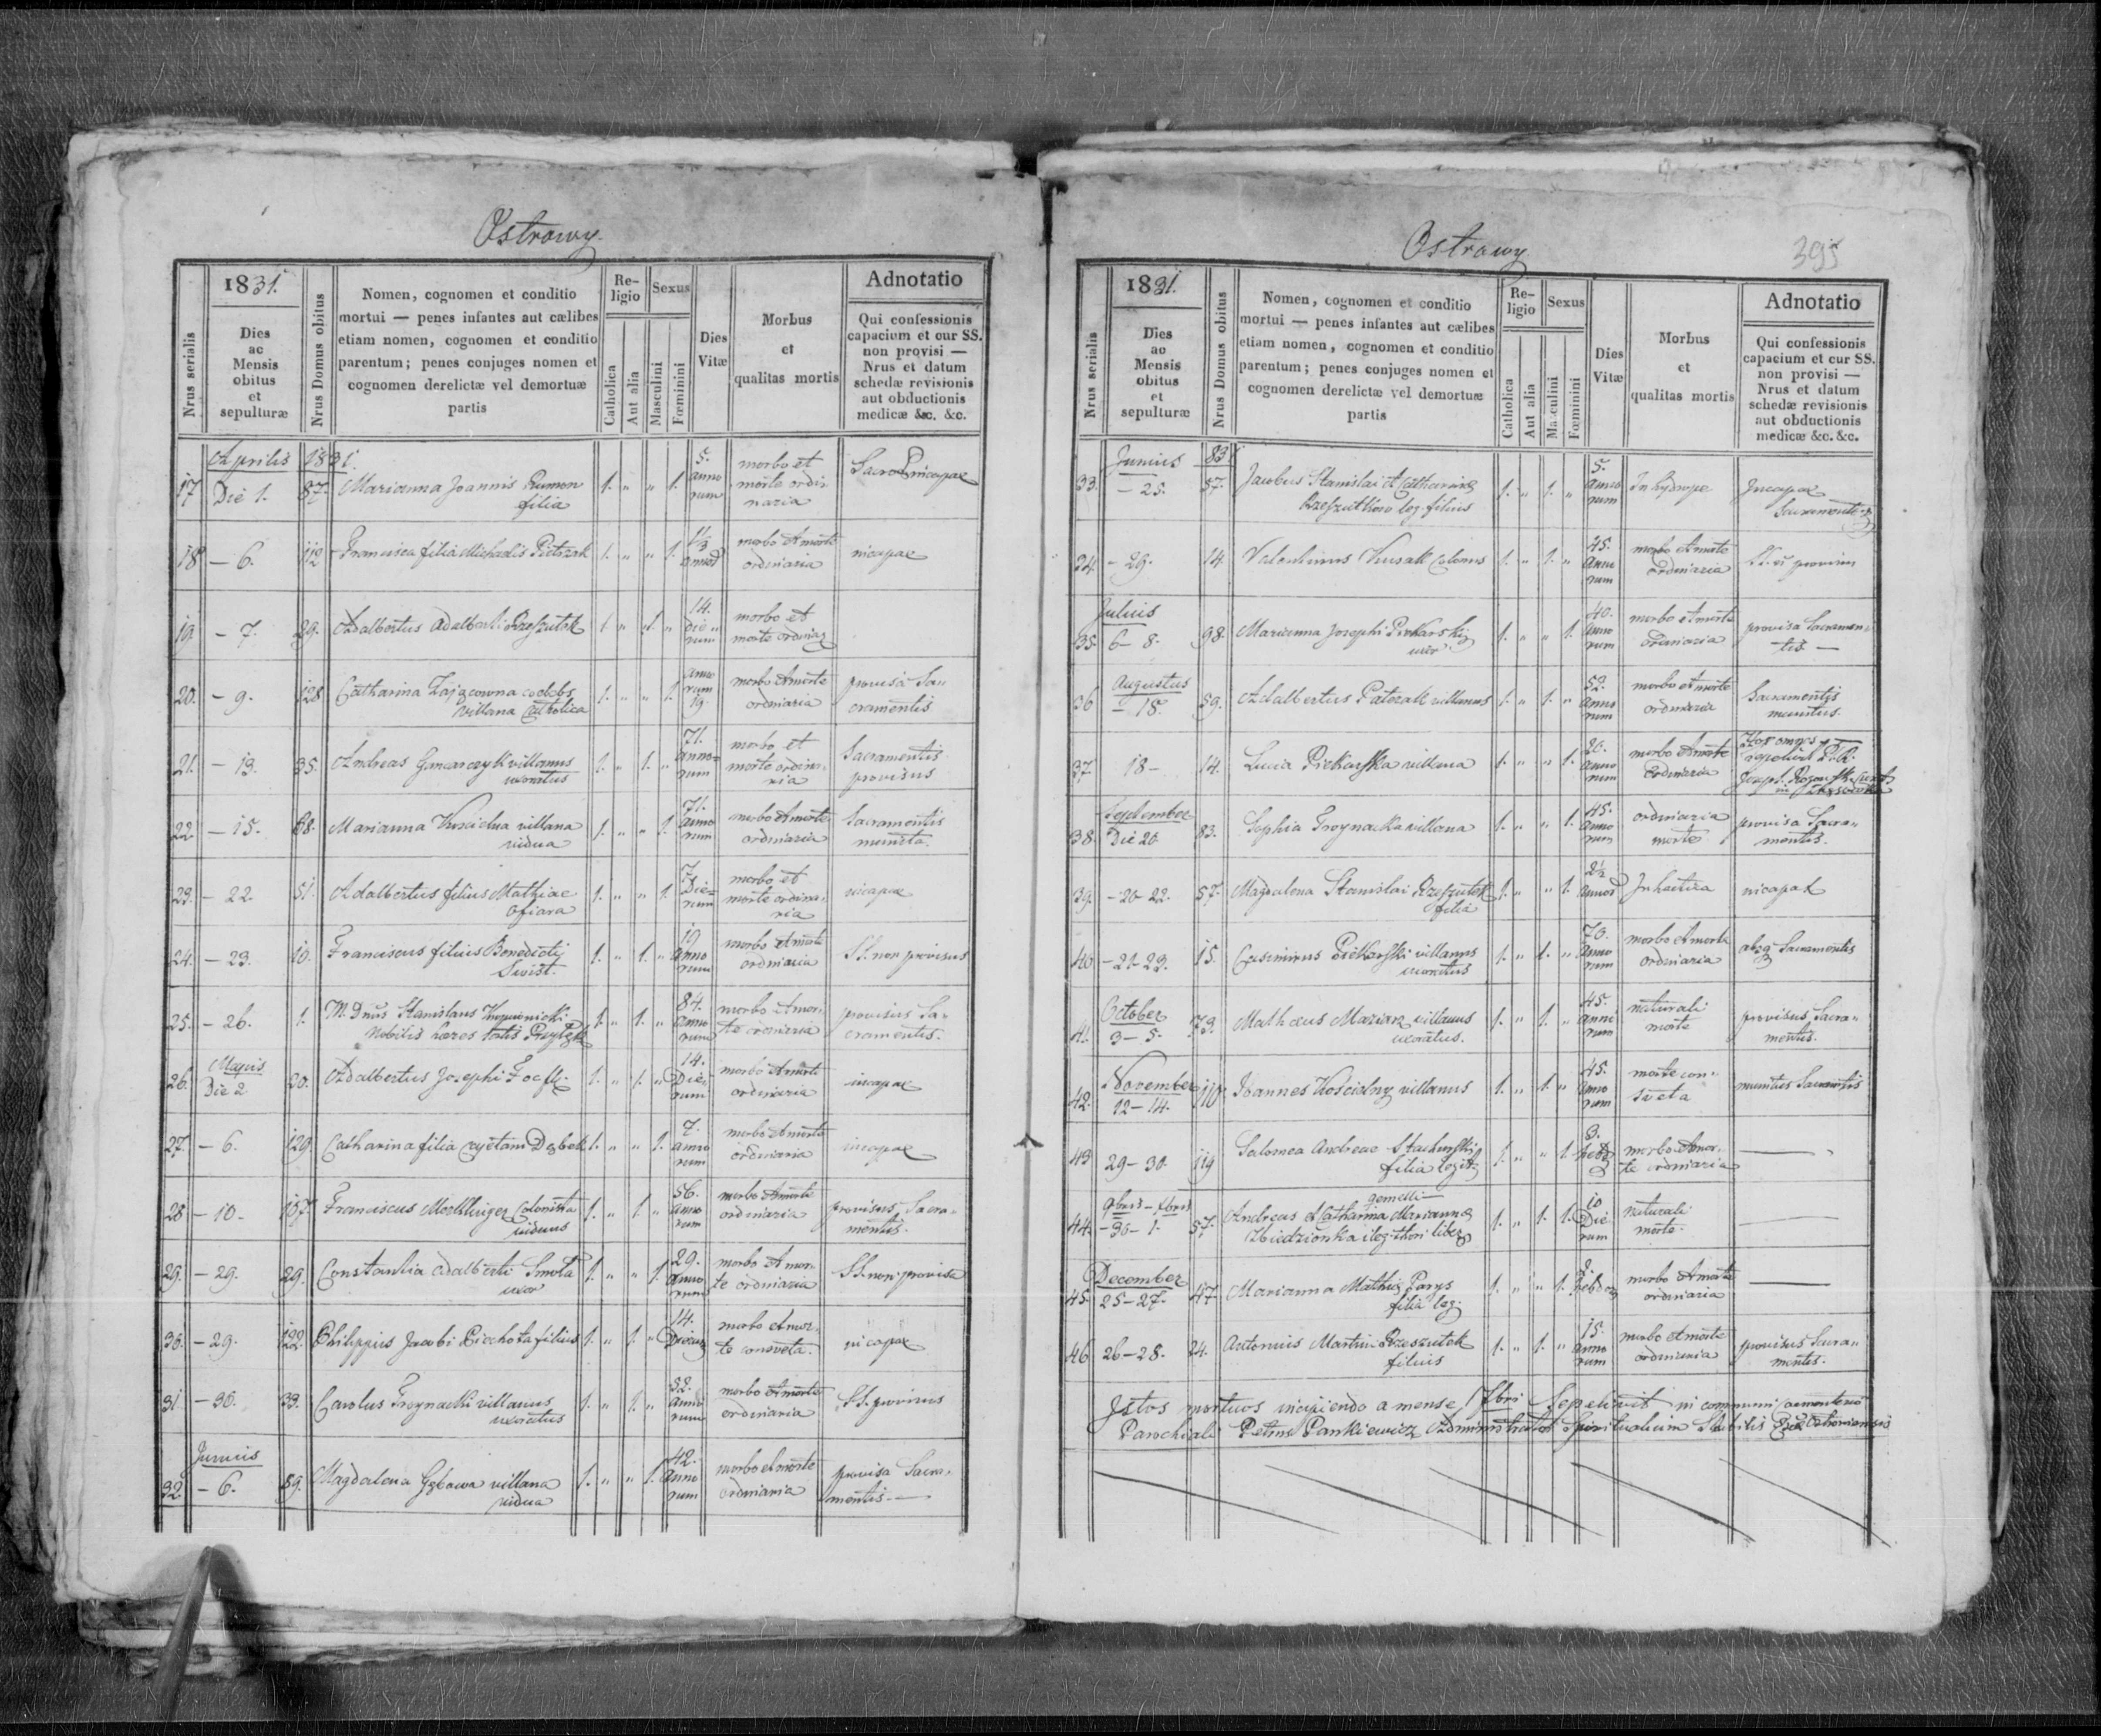 Ostrawy
Nrus serialis
1831.
Dies
ac
Mensis
obitus
et
sepulturæ
Nrus Domus obitus
Nomen, cognomen et conditio
mortui — penes infantes aut cælibes
etiam nomen, cognomen et conditio
parentum; penes conjuges nomen et
cognomen derelictæ vel demortuæ
partis
Re-
ligio
Catholica
Aut alia
Sexus
Masculini
Fœminini
Dies
Vitæ
Morbus
et
qualitas mortis
Adnotatio
Qui confessionis
capacium et cur SS.
non provisi —
Nrus et datum
schedæ revisionis
aut obductionis
medicæ &c. &c.
Aprilis 1831.
17 Die 1. 87. Marianna Joannis Rumon
filia 1. " " 1. 5.
anno
rum morbo et
morte ordi-
naria
18 — 6. 112 Francisca filia Michaelis Pietrzak 1. " " 1. morbo et morte
ordinaria incapax
19 — 7. 29. Adalbertus Adalberti Rzeszutek 1 " 1. " 14.
die-
rum morbo et
morte ordinar
20. — 9. 128 Catharina Zającowna coelebs
villana Catholica 1. " " 1. anno
rum
19. morbo et morte
ordinaria provisa Sa-
cramentis
21. — 13. 35. Andreas Gancarczyk villanus
uxoratus 1. " 1. " 71.
anno-
rum morbo et
morte ordina-
ria Sacramentis
provisus
22 — 15. 68. Marianna villana
vidua 1. " " 1. 71.
anno
rum morbo et morte
ordinaria Sacramentis
munita.
23. — 22. 51. Adalbertus filius Mathiae
Ofiara 1. " " 1. 7.
Die-
rum morbo et
morte ordina-
ria incapax
24. — 23. 10. Franciscus filius Benedicti
Swist. 1. " 1. " 19
anno
rum morbo et morte
ordinaria SS. non provisus
25. — 26. 1. M. Dnus Stanislaus
Nobilis hæres 1. " 1. " 84.
anno
rum morbo et mor-
te ordinaria provisus Sa-
cramentis.
Majus
26. Die 2 20. Adalbertus Josephi 1. " 1. " 14.
Die-
rum morbo et morte
ordinaria incapax
27. — 6. 129. Catharina filia Cajetani Dębek 1. " " 1. 7.
anno
rum morbo et morte
ordinaria incapax
28 — 10 — 107. Franciscus Colonista
viduus 1. " 1. " 56.
anno
rum morbo et morte
ordinaria provisus Sacra-
mentis.
29. — 29. 29. Constantia Adalberti Smola
uxor 1. " " 1. 29.
anno
rum morbo et mor-
te ordinaria SS. non provisa
30. — 29. 122. Philippus Jacobi Piechota filius 1. " 1. " 14.
Dierum morbo et mor-
te consveta. incapax
31. — 30. 33. Carolus Troynacki villanus
uxoratus 1. " 1. " 32.
anno
rum morbo et morte
ordinaria SS. provisus
Junius
32. — 6. 89. Magdalena Gębowa villana
vidua 1. " " 1. 42.
anno
rum morbo et morte
ordinaria provisa Sacra-
mentis. —
Ostrawy
395
Nrus serialis
1831.
Dies
ac
Mensis
obitus
et
sepulturæ
Nrus Domus obitus
Nomen, cognomen et conditio
mortui — penes infantes aut cælibes
etiam nomen, cognomen et conditio
parentum; penes conjuges nomen et
cognomen derelictæ vel demortuæ
partis
Re-
ligio
Catholica
Aut alia
Sexus
Masculini
Fœminini
Dies
Vitæ
Morbus
et
qualitas mortis
Adnotatio
Qui confessionis
capacium et cur SS.
non provisi —
Nrus et datum
schedæ revisionis
aut obductionis
medicæ &c. &c.
Junius 831
33. — 25. 57. Jacobus Stanislai et Catharinæ
Rzeszuthow leg. filius 1. " 1. " 5.
anno
rum In hydrope Incapax
Sacramentor
34. — 29. 14. Valentinus Kusak colonus 1. " 1. " 45.
anno
rum morbo et morte
ordinaria
Julius
35. 6 — 8. 98. Marianna Josephi Piekarski
uxor 1. " " 1. 40.
anno
rum morbo et morte
ordinaria provisa Sacramen-
tis —
Augustus
36 — 18. 59. Adalbertus Paterak villanus 1. " 1. " 52.
anno
rum morbo et morte
ordinaria Sacramentis
munitus.
37. 18 — 14. Lucia Piekarska villana 1. " " 1. 20.
anno
rum morbo et morte
ordinaria
sepelivit
Joseph.
September
38. Die 20 83. Sophia Troynacka villana 1. " " 1. 45.
anno
rum ordinaria
morte provisa Sacra-
mentis.
39. — 20 — 22. 57. Magdalena Stanislai Rzeszutek
filia 1. " " 1. 2½
annor In hectica incapax
40 — 21 — 23. 15. Casimirus Piekarski villanus
uxoratus 1. " 1. " 70.
anno
rum morbo et morte
ordinaria absq Sacramentis
October
41. 3 — 5. 79. Mathæus Maziarz villanus
uxoratus. 1. " 1. " 45.
anno
rum naturali
morte provisus Sacra-
mentis.
November
42. 12 — 14. 110 Joannes Kościelny villanus 1. " 1. " 45.
anno
rum morte con-
sveta munitus Sacramentis
43 29 — 30. 119 Salomea Andreae Stachurski
filia legit 1. " " 1. 3.
hebd morbo et mor-
te ordinaria —
9bris — Xbris
44. — 30 — 1. 57. gemelli —
Andreas et Catharina Mariannæ
Zbiedzionka illeg. thori liberi 1. " 1. 1. 10
Die-
rum naturali
morte. —
December
45. 25 — 27. 47. Marianna Mathiæ Parys
filia leg. 1. " " 1. hebdom morbo et morte
ordinaria —
46 26 — 28. 24. Antonius Martini Rzeszutek
filius 1. " 1. " 15.
anno
rum morbo et morte
ordinaria provisus Sacra-
mentis.
Istos mortuos incipiendo a mense 7bri Sepelivit in communi cæmenterio
Parochiali Petrus Pankiewicz Administrator Spiritualium